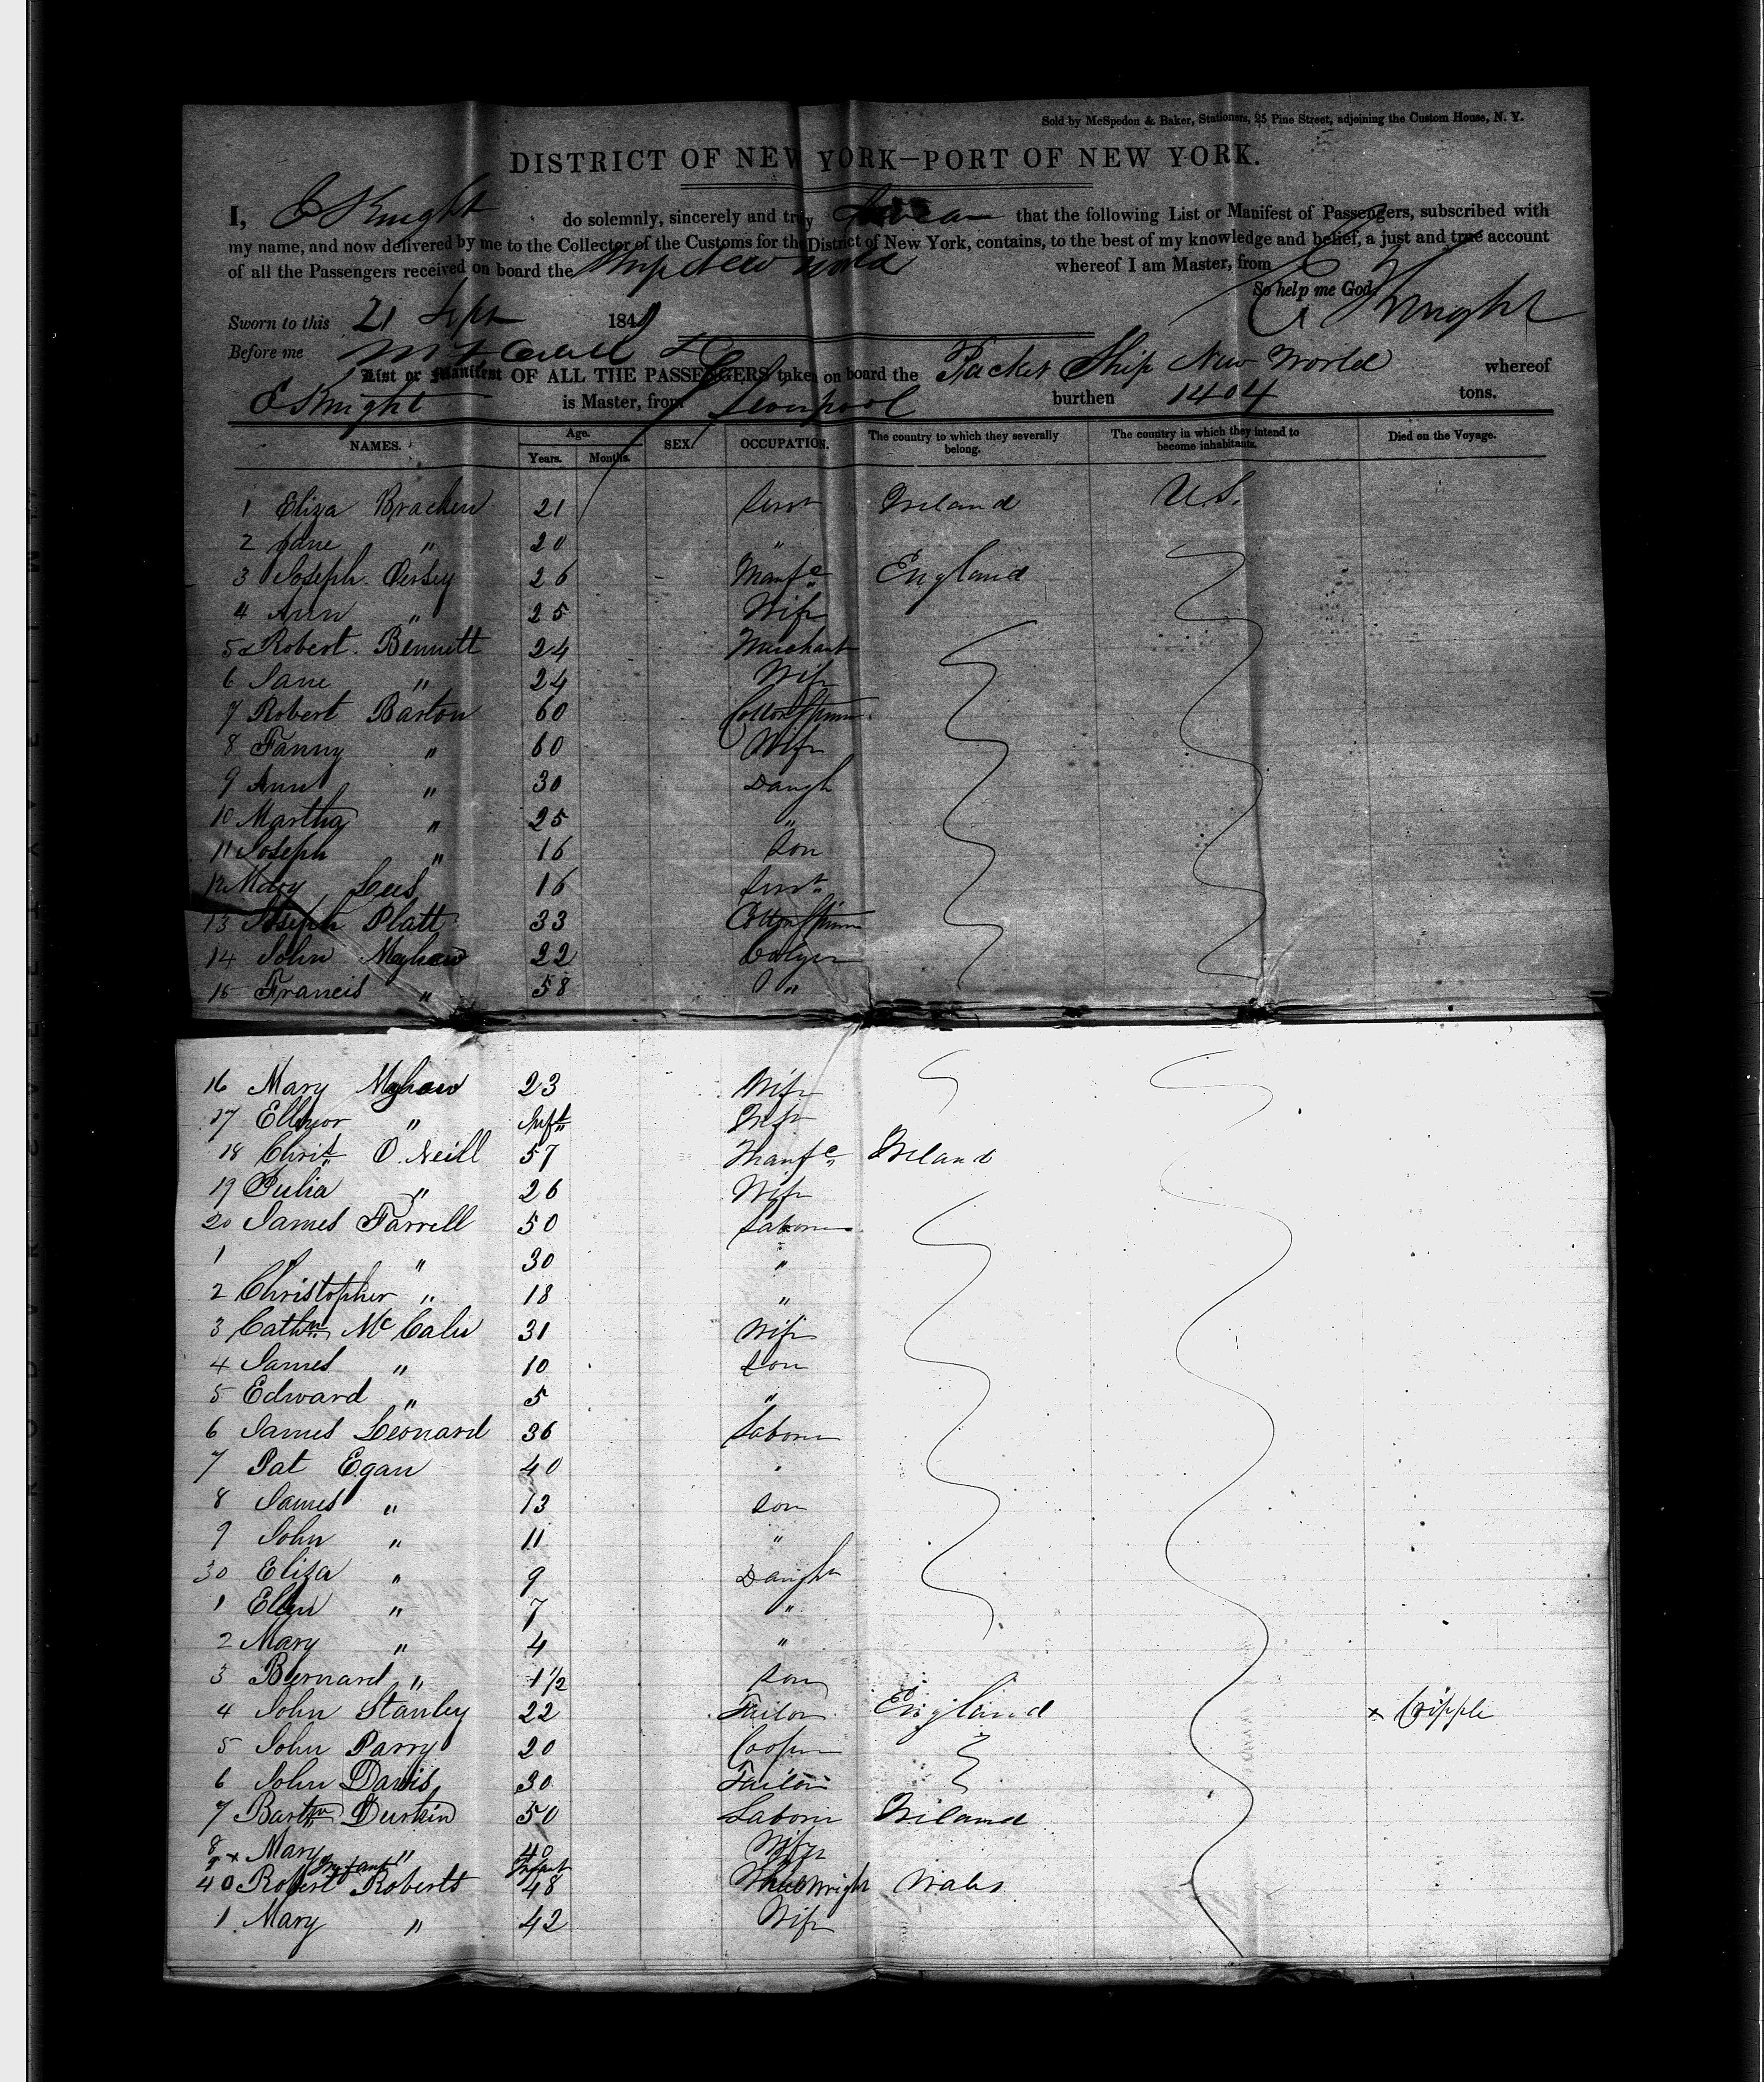 Sold by McSpedon & Baker, Stationers, 25 Pine Street, adjoining the Custom House, N. Y.
DISTRICT OF NEW YORK—PORT OF NEW YORK.
I, E Knight do solemnly, sincerely and truly swear that the following List or Manifest of Passengers, subscribed with
my name, and now delivered by me to the Collector of the Customs for the District of New York, contains, to the best of my knowledge and belief, a just and true account
of all the Passengers received on board the Ship New World whereof I am Master, from
So help me God.
E Knight
Sworn to this 21 Sept 1849
Before me
List or Manifest OF ALL THE PASSENGERS taken on board the Packet Ship New World whereof
E Knight is Master, from Liverpool burthen 1404 tons.
NAMES. Age. Years. Months. SEX. OCCUPATION. The country to which they severally belong. The country in which they intend to become inhabitants. Died on the Voyage.
1 Eliza Bracken 21 Servt Ireland U.S.
2 Jane " 20 "
3 Joseph Persey 26 Manfc England
4 Ann " 25 Wife
5 Robert Bennett 24 Merchant
6 Jane " 24 Wife
7 Robert Barton 60 Cotton Spinner
8 Fanny " 60 Wife
9 Ann " 30 Daugh
10 Martha " 25 "
11 Joseph " 16 Son
12 Mary Lees 16 Servt
13 Joseph Platt 33 Cotton Spinner
14 John Mayhew 22
15 Francis " 58 "
16 Mary Mayhew 23 Wife
17 Ellenor " Inft Inft
18 Christ O. Neill 57 Manfc Ireland
19 Julia " 26 Wife
20 James Farrell 50 Laborer
1 " " 30 "
2 Christopher " 18 "
3 Cathn McCabe 31 Wife
4 James " 10 Son
5 Edward " 5 "
6 James Leonard 36 Laborer
7 Pat Egan 40 "
8 James " 13 Son
9 John " 11 "
30 Eliza " 9 Daughr
1 Ellen " 7 "
2 Mary " 4 "
3 Bernard " 1 1/2 Son
4 John Stanley 22 Tailor England x Cripple
5 John Parry 20 Cooper
6 John Davis 30 Tailor
7 Bartw Durkin 50 Laborer Ireland
8 x Mary " 40 Wife
9 Infant Infant
40 Robert Roberts 48 Wheelwright Wales
1 Mary " 42 Wife